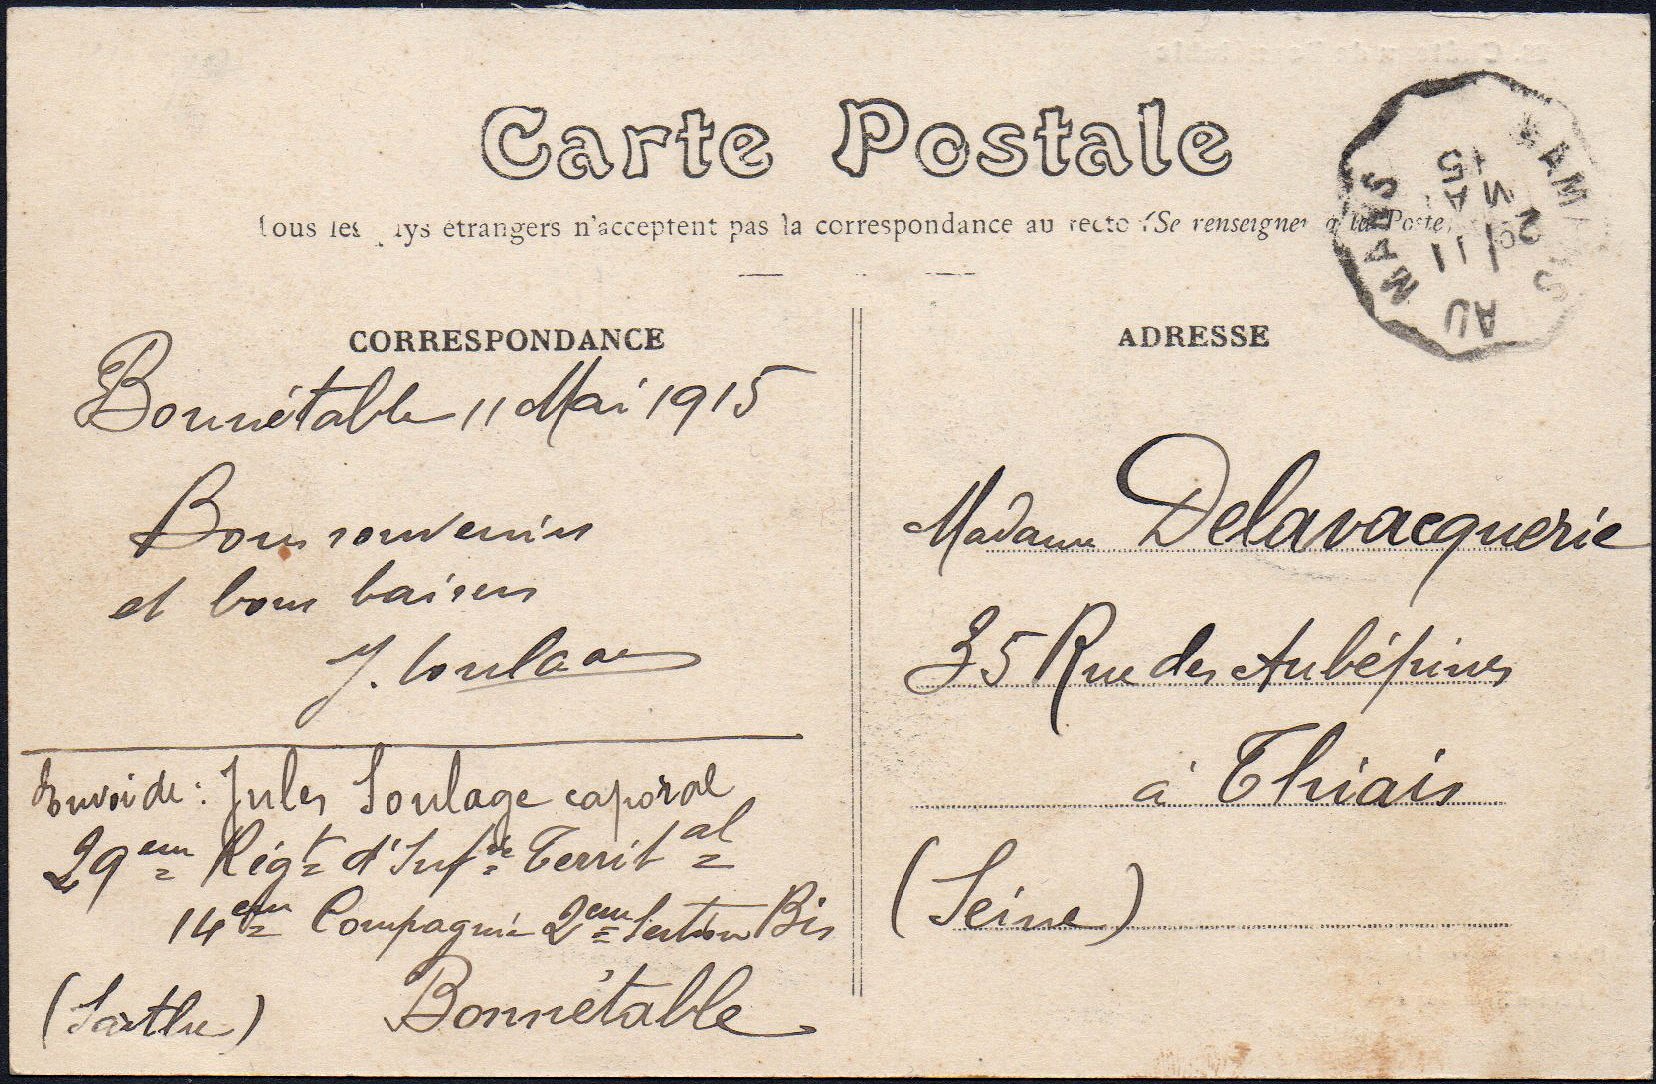 Carte Postale
Tous les pays étrangers n'acceptent pas la correspondance au recto (Se renseigner à la Poste)
MAMERS AU MANS
11
5
15
CORRESPONDANCE
ADRESSE
Bonnétable 11 Mai 1915
Bons souvenirs
et bons baisers
J. Soulage
Envoi de : Jules Soulage caporal
29eme Régt d'Infie Territal
14eme Compagnie 2eme Section Bis
(Sarthe) Bonnétable
Madame Delavacquerie
35 Rue des Aubépines
à Thiais
(Seine)